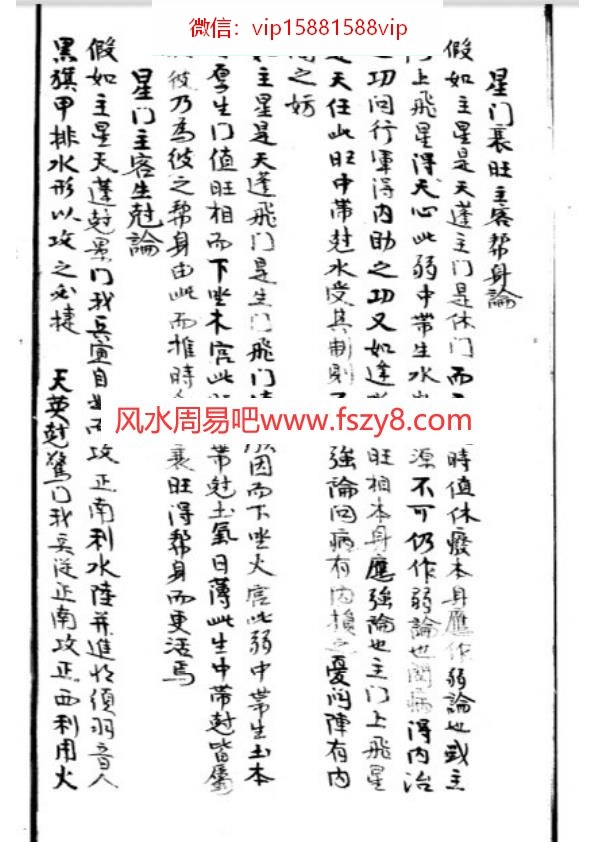 微信：vip15881588vip
星门衰旺主客帮身論
假如主星是天蓬主门是休门而 時值休廢本身應作弱論也或主
上飛星得天心此弱中帶生水 源不可仍作弱論也問病得内治
之功问行軍得内助之功又如逢 旺相本身應強論也主门上飛星
是天任此旺中帶尅水受其制則 強論问病有内損之憂问陣有内
之妨
主星是天蓬飛门是生门飛门 因而下坐火宫此弱中帶生土本
生门值旺相而下坐木宫此 帶尅土氣日薄此生中帶尅皆屬
彼乃為彼之帮身由此而推時 衰旺得帮身而更活焉
星门主客生尅論
假如主星天蓬尅景门我兵宜自 而攻正南利水陸并進將須羽音人
黑旗甲排水形以攻之必捷 天英尅驚门我兵從正南攻正西利用火
风水周易吧www.fszy8.com